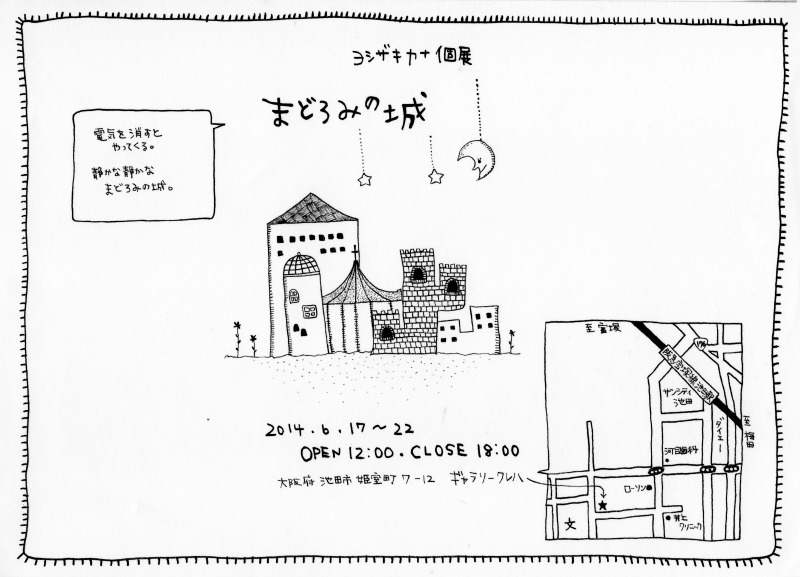 ヨシザキカナ 個展
まどろみの城
電気を消すと
やってくる。
静かな静かな
まどろみの城。
2014.6.17〜22
OPEN 12:00. CLOSE 18:00
大阪府 池田市 姫室町 7-12 ギャラリークレハ
至宝塚
阪急宝塚線池田駅
サンシティ
池田
ダイエー
至梅田
河合歯科
ローソン
井上
クリニック
文